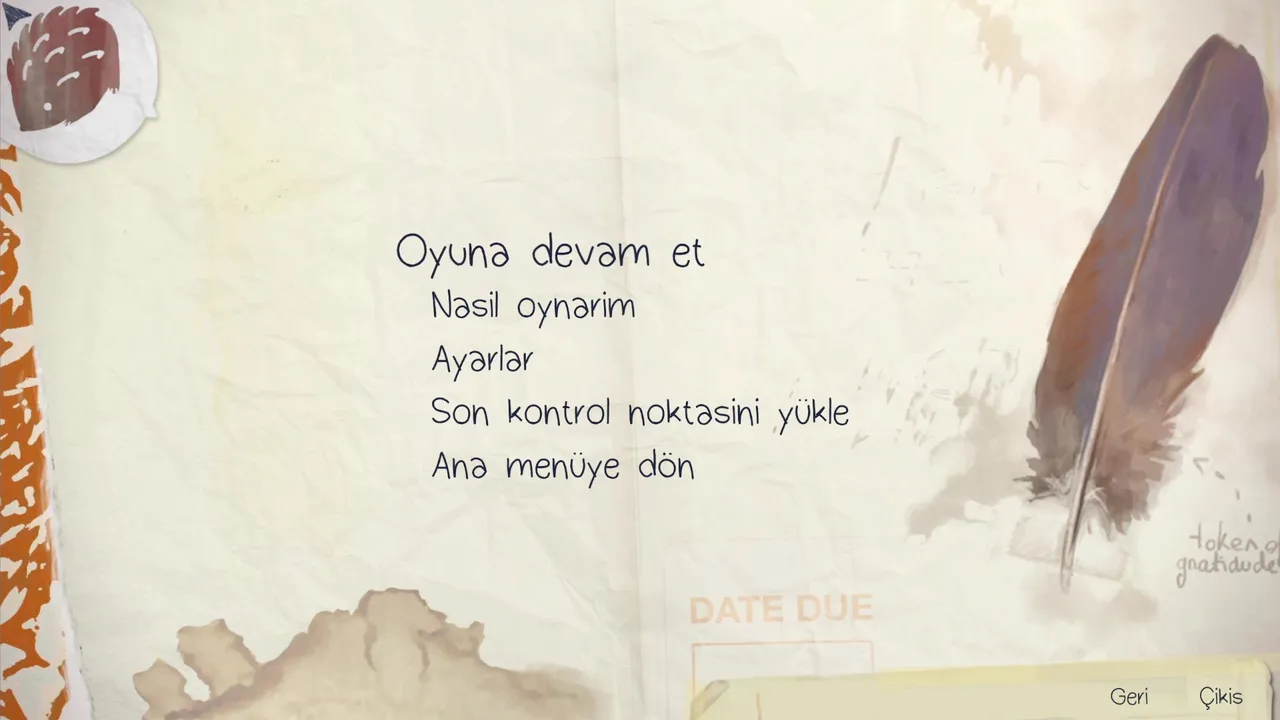 Oyuna devam et
Nasil oynarim
Ayarlar
Son kontrol noktasini yükle
Ana menüye dön
token o
gratidude
DATE DUE
Geri
Çikis